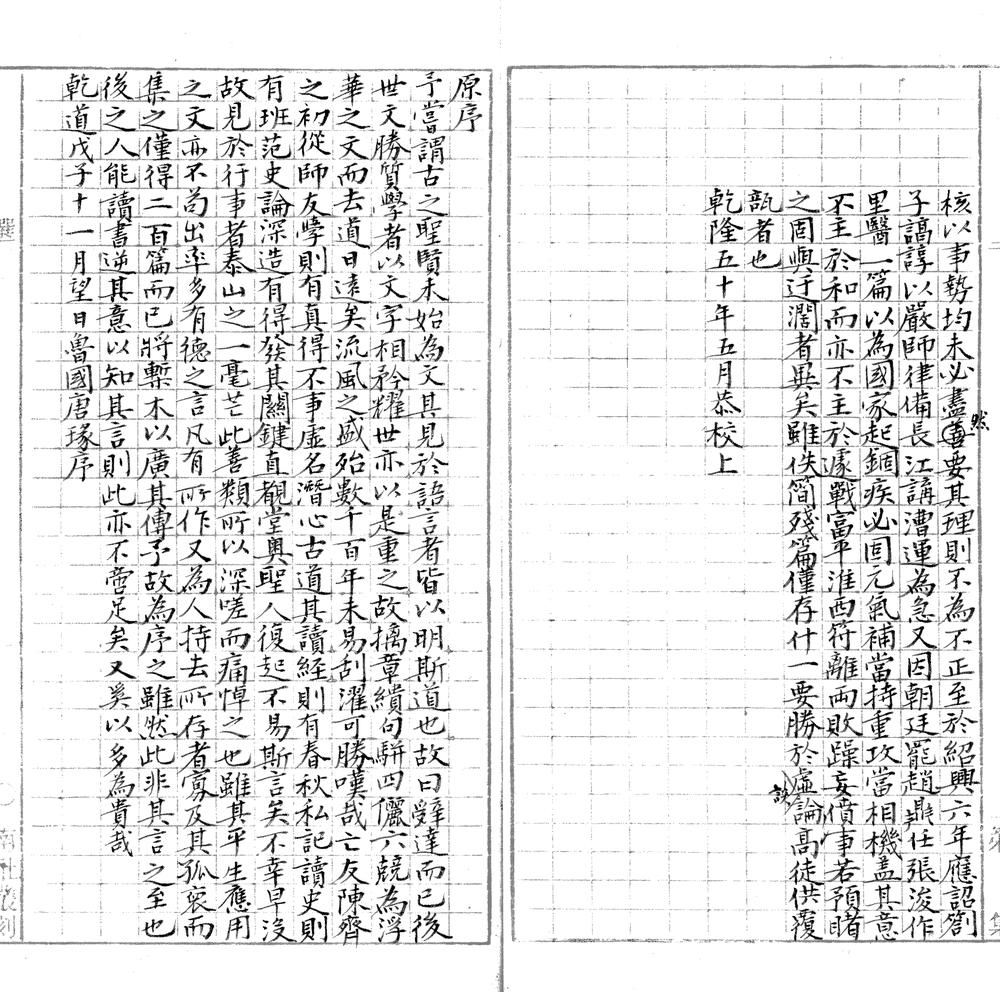 核以事勢均未必盡善然要其理則不為不正至於紹興六年應詔劄
子諄諄以嚴師律備長江講漕運為急又因朝廷罷趙鼎任張浚作
里醫一篇以為國家起錮疾必固元氣補當持重攻當相機盖其意
不主於和而亦不主於遽戰富平淮西符離兩敗躁妄僨事若預睹
之固與迂濶者異矣雖佚簡殘篇僅存什一要勝於虛談高論徒供覆
瓿者也
乾隆五十年五月恭校上
原序
予嘗謂古之聖賢未始為文其見於語言者皆以明斯道也故曰辭達而已後
世文勝質學者以文字相矜耀世亦以是重之故摛章繢句駢四儷六競為浮
華之文而去道日遠矣流風之盛殆數千百年未易刮濯可勝嘆哉亡友陳齊
之初從師友學則有真得不事虛名潛心古道其讀經則有春秋私記讀史則
有班范史論深造有得發其關鍵直覩堂奧聖人復起不易斯言矣不幸早沒
故見於行事者泰山之一毫芒此善類所以深嗟而痛悼之也雖其平生應用
之文亦不苟出率多有德之言凡有所作又為人持去所存者寡及其孤裒而
集之僅得二百篇而已將槧木以廣其傳予故為序之雖然此非其言之至也
後之人能讀書逆其意以知其言則此亦不啻足矣又奚以多為貴哉
乾道戊子十一月望日魯國唐瑑序